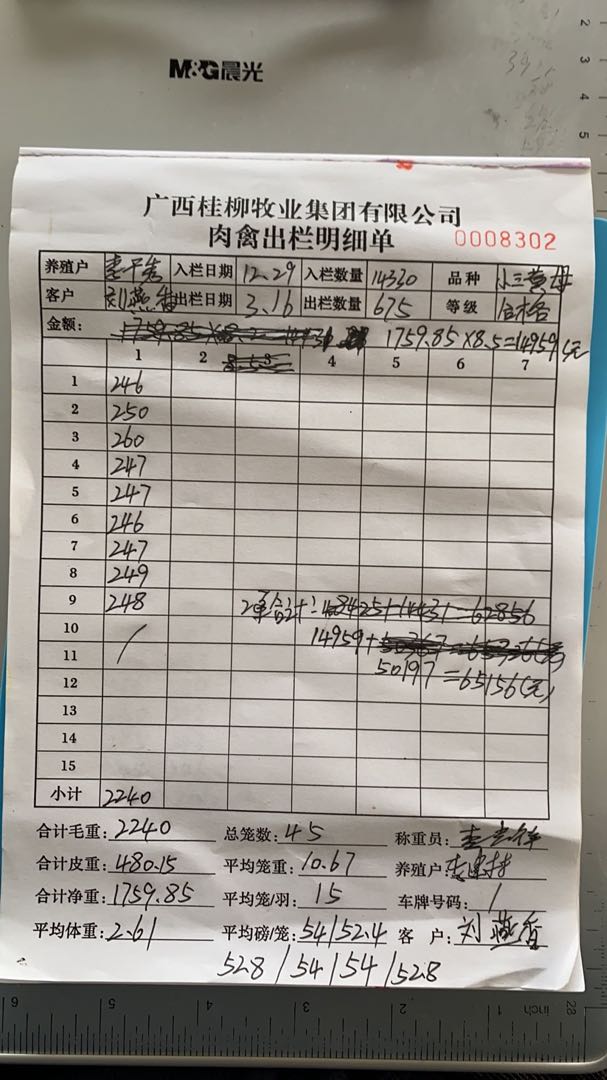 M&G晨光
广西桂柳牧业集团有限公司
肉禽出栏明细单 0008302
养殖户 入栏日期 12.29 入栏数量 14330 品种 小三黄母
客户 刘燕香 出栏日期 3.16 出栏数量 675 等级 合格
金额: 1759.85×8.5=14959(元)
1 2 3 4 5 6 7
1 246
2 250
3 260
4 247
5 247
6 246
7 247
8 249
9 248 2单合计: 48425+14431=62856
10 14959+
11 50197=65156(元)
12
13
14
15
小计 2240
合计毛重: 2240 总笼数: 45 称重员:
合计皮重: 480.15 平均笼重: 10.67 养殖户:
合计净重: 1759.85 平均笼/羽: 15 车牌号码: /
平均体重: 2.61 平均磅/笼: 54/52.4 客 户: 刘燕香
52.8/54/54/52.8